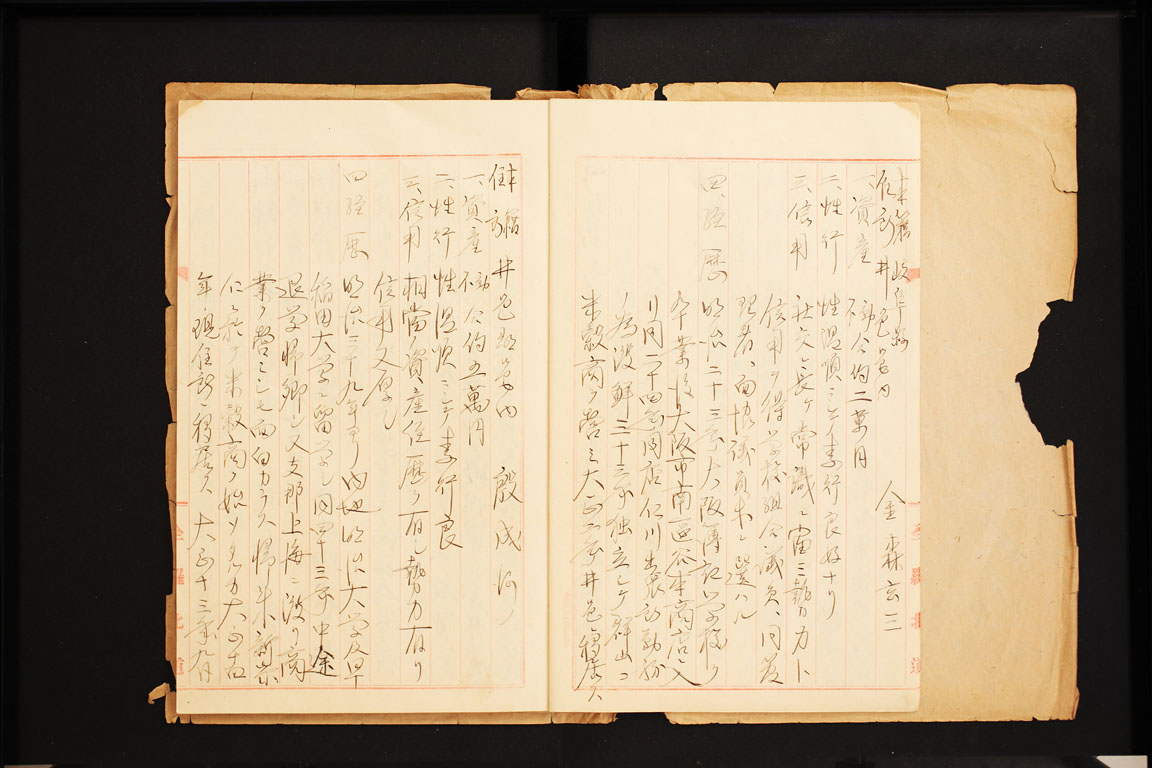 本籍 岐阜縣
住所 井邑邑内 金森玄三
一、資産 動、不 約二萬円
二、性行 性温順ニシテ素行良好ナリ
三、信用 社交ニ長ケ常識ニ富ミ勢力ト
信用ヲ得学校組合議員、同管
理者、面協議員等ニ選ハル
四、経歴 明治二十三年大阪簿記学校ヲ
卒業後大阪市南区谷本商店ニ入
リ同二十四年同店仁川出張所勤務
ノ為渡鮮三十三年独立シテ群山ニ
米穀商ヲ営ミ大正 年井邑ニ移居ス
本籍
住所 井邑郡邑内 殷成河
一、資産 動、不 約五萬円
二、性行 性温順ニシテ素行良
三、信用 相当ノ資産経歴ヲ有シ勢力有リ
信用又厚シ
四、経歴 明治三十九年ヨリ内地明治大学、早
稲田大学ニ留学シ同四十三年中途
退学帰郷シ又支那上海ニ渡リ商
業ヲ営ミシモ面白カラス帰来新泰
仁ニ於テ米穀商ヲ始メタルカ大正
年現住所ニ移居ス 大正十三年九月
全羅北道
全羅北道